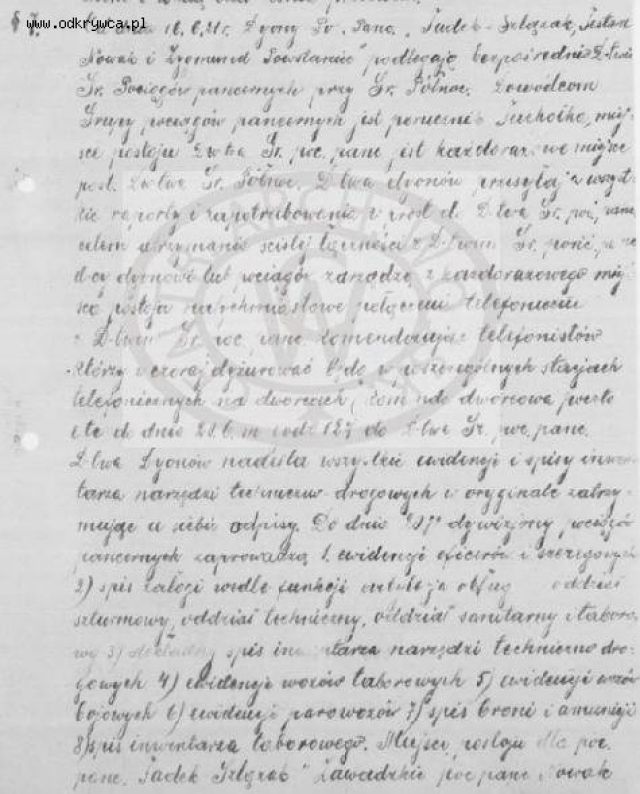 www.odkrywca.pl
§ 7. dnia 18.6.21r. Dyony Po. Panc. "Tadek - Szlązak, Testen
Nowak i Zygmund Powstaniec" podlegają bezpośrednio D-twu
Gr. Pociągów pancernych przy Gr. Północ. Dowódcom
Grupy pociągów pancernych jest porucznik Tuchołka, miej-
sce postoju Gr. poc. panc jest każdorazowe miejsce
post. Gr. Północ. D-twa dyonów przesyłają wszyst-
kie raporty i zapotrzebowania wprost do D-twa Gr. poc. panc.
celem utrzymania ścisłej łączności z D-twem Gr. 
d-cy dyonów lub pociągów zarządzą z każdorazowego miej-
sca postoju natychmiastowe połączenie telefoniczne
z D-twem Gr. poc. panc. telefonistów
którzy dyżurować będą w poszczególnych stacjach
telefonicznych na dworcach
do dnia 20.6. m godz 12 do D-twa Gr. poc. panc.
D-twa Dyonów nadeśla wszystkie ewidencje i spisy inwen-
tarza narzędzi techniczno drogowych w oryginale zatrzy-
mując u siebie odpisy. Do dnia dywizjony pociągów
pancernych zaprowadzą 1. ewidencje oficerów i szeregowych
2) spis załogi wedle funkcji obsług oddział
szturmowy, oddział techniczny, oddział sanitarny i taboro-
wy 3) dokładny spis inwentarza narzędzi techniczno dro-
gowych 4) ewidencje wozów taborowych 5) ewidencje wozów
bojowych 6) ewidencje parowozów 7) spis broni i amunicji
8) spis inwentarza taborowego. Miejsce postoju dla poc.
panc. "Tadek Szlązak" Zawadzkie poc panc Nowak